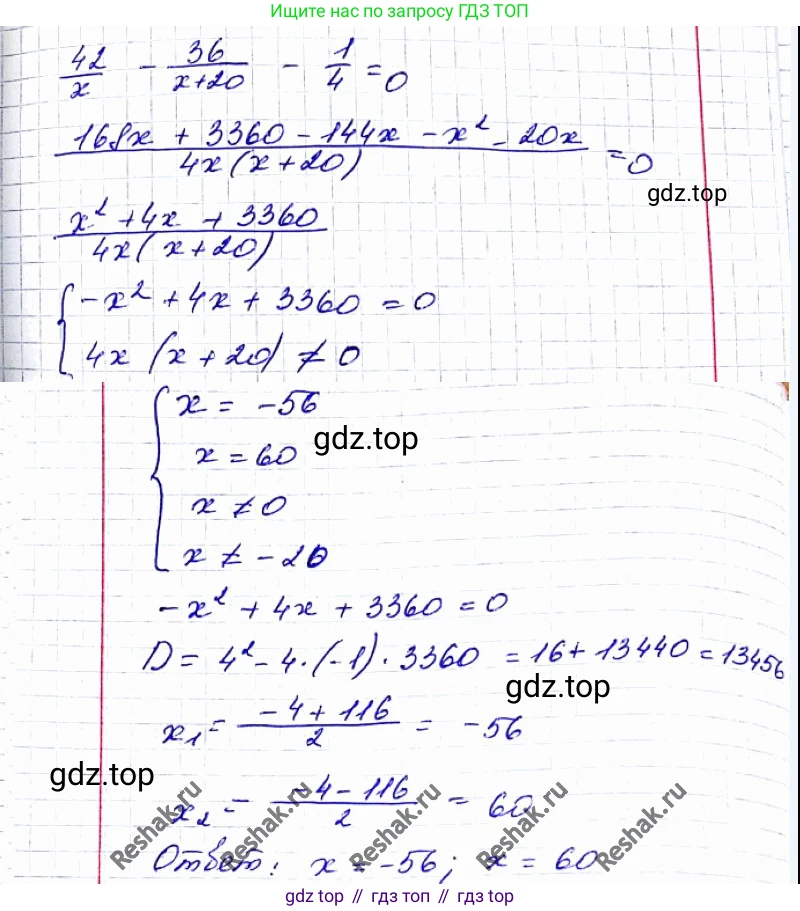 Ищите нас по запросу ГДЗ ТОП
42/x - 36/(x+20) - 1/4 = 0
(168x + 3360 - 144x - x² - 20x)/(4x(x+20)) = 0
gdz.top
(x² + 4x + 3360)/(4x(x+20))
{ -x² + 4x + 3360 = 0
4x (x + 20) ≠ 0
{ x = -56
gdz.top
x = 60
x ≠ 0
x ≠ -20
-x² + 4x + 3360 = 0
D = 4² - 4·(-1)·3360 = 16 + 13440 = 13456
gdz.top
x₁ = (-4 + 116)/2 = -56
gdz.top
x₂ = (-4 - 116)/2 = 60
Reshak.ru Reshak.ru Reshak.ru Reshak.ru Reshak.ru
Ответ: x = -56; x = 60
gdz.top // гдз топ // гдз.top